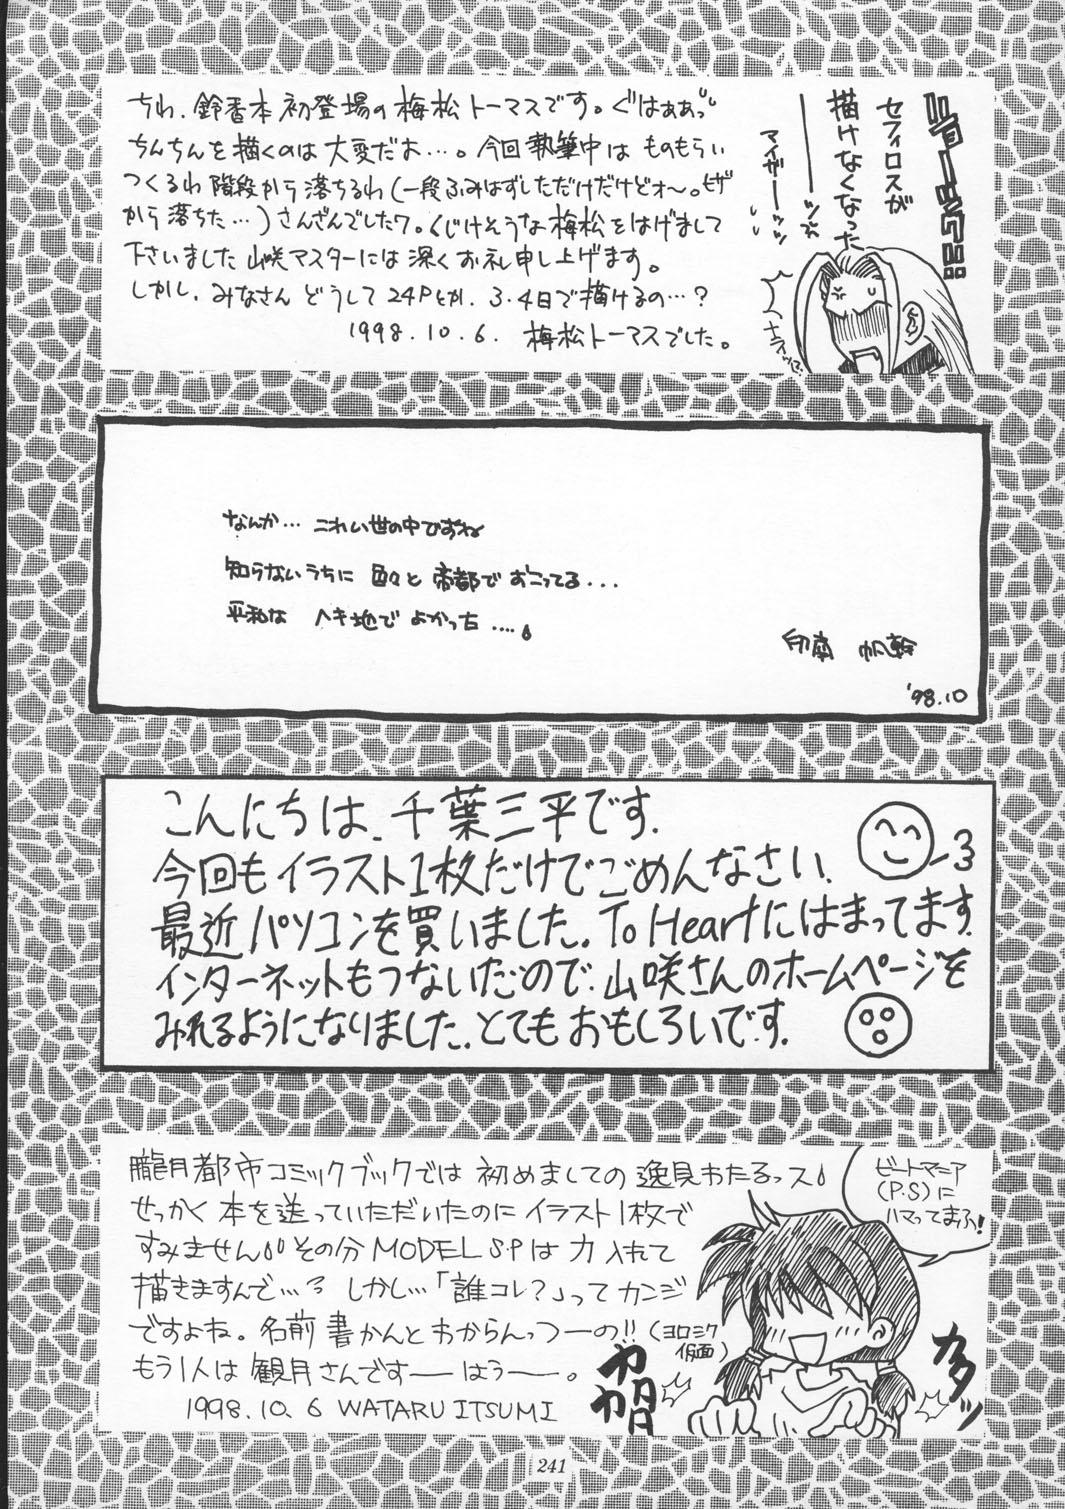 ちわ、鈴香本初登場の梅松トーマスです。ぐはぁぁっ
ちんちんを描くのは大変だよ…。今回執筆中はものもらい
つくるわ階段から落ちるわ(一段ふみはずしただけだけどォ〜。ヒザ
から落ちた…)さんざんでしたワ。くじけそうな梅松をはげまして
下さいました山咲マスターには深くお礼申し上げます。
しかし、みなさんどうして24Pとか、3・4日で描けるの…?
1998.10.6. 梅松トーマスでした。
セフィロスが
描けなくなった
マイガーーッッ
なんか… こわい世の中ですね
知らないうちに 色々と 帝都で おこってる...
平和な ヘキ地で よかった ....
印南 帆幹
'98.10
こんにちは、千葉三平です.
今回もイラスト1枚だけでごめんなさい.
最近パソコンを買いました。To Heartにはまってます.
インターネットもつないだので、山咲さんのホームページを
みれるようになりました。とてもおもしろいです.
朧月都市コミックブックでは初めましての逸見わたるっス
せっかく本を送っていただいたのにイラスト1枚で
すみません その分MODEL S.Pは力入れて
描きますんで…? しかし…「誰コレ?」ってカンジ
ですよね。名前書かんとわからんっつーの!!(ヨロシク仮面)
もう1人は観月さんですーーはうーー。
1998.10.6 WATARU ITSUMI
ビートマニア
(P.S)に
ハマってまふ!
カカカカ
カタッ
241